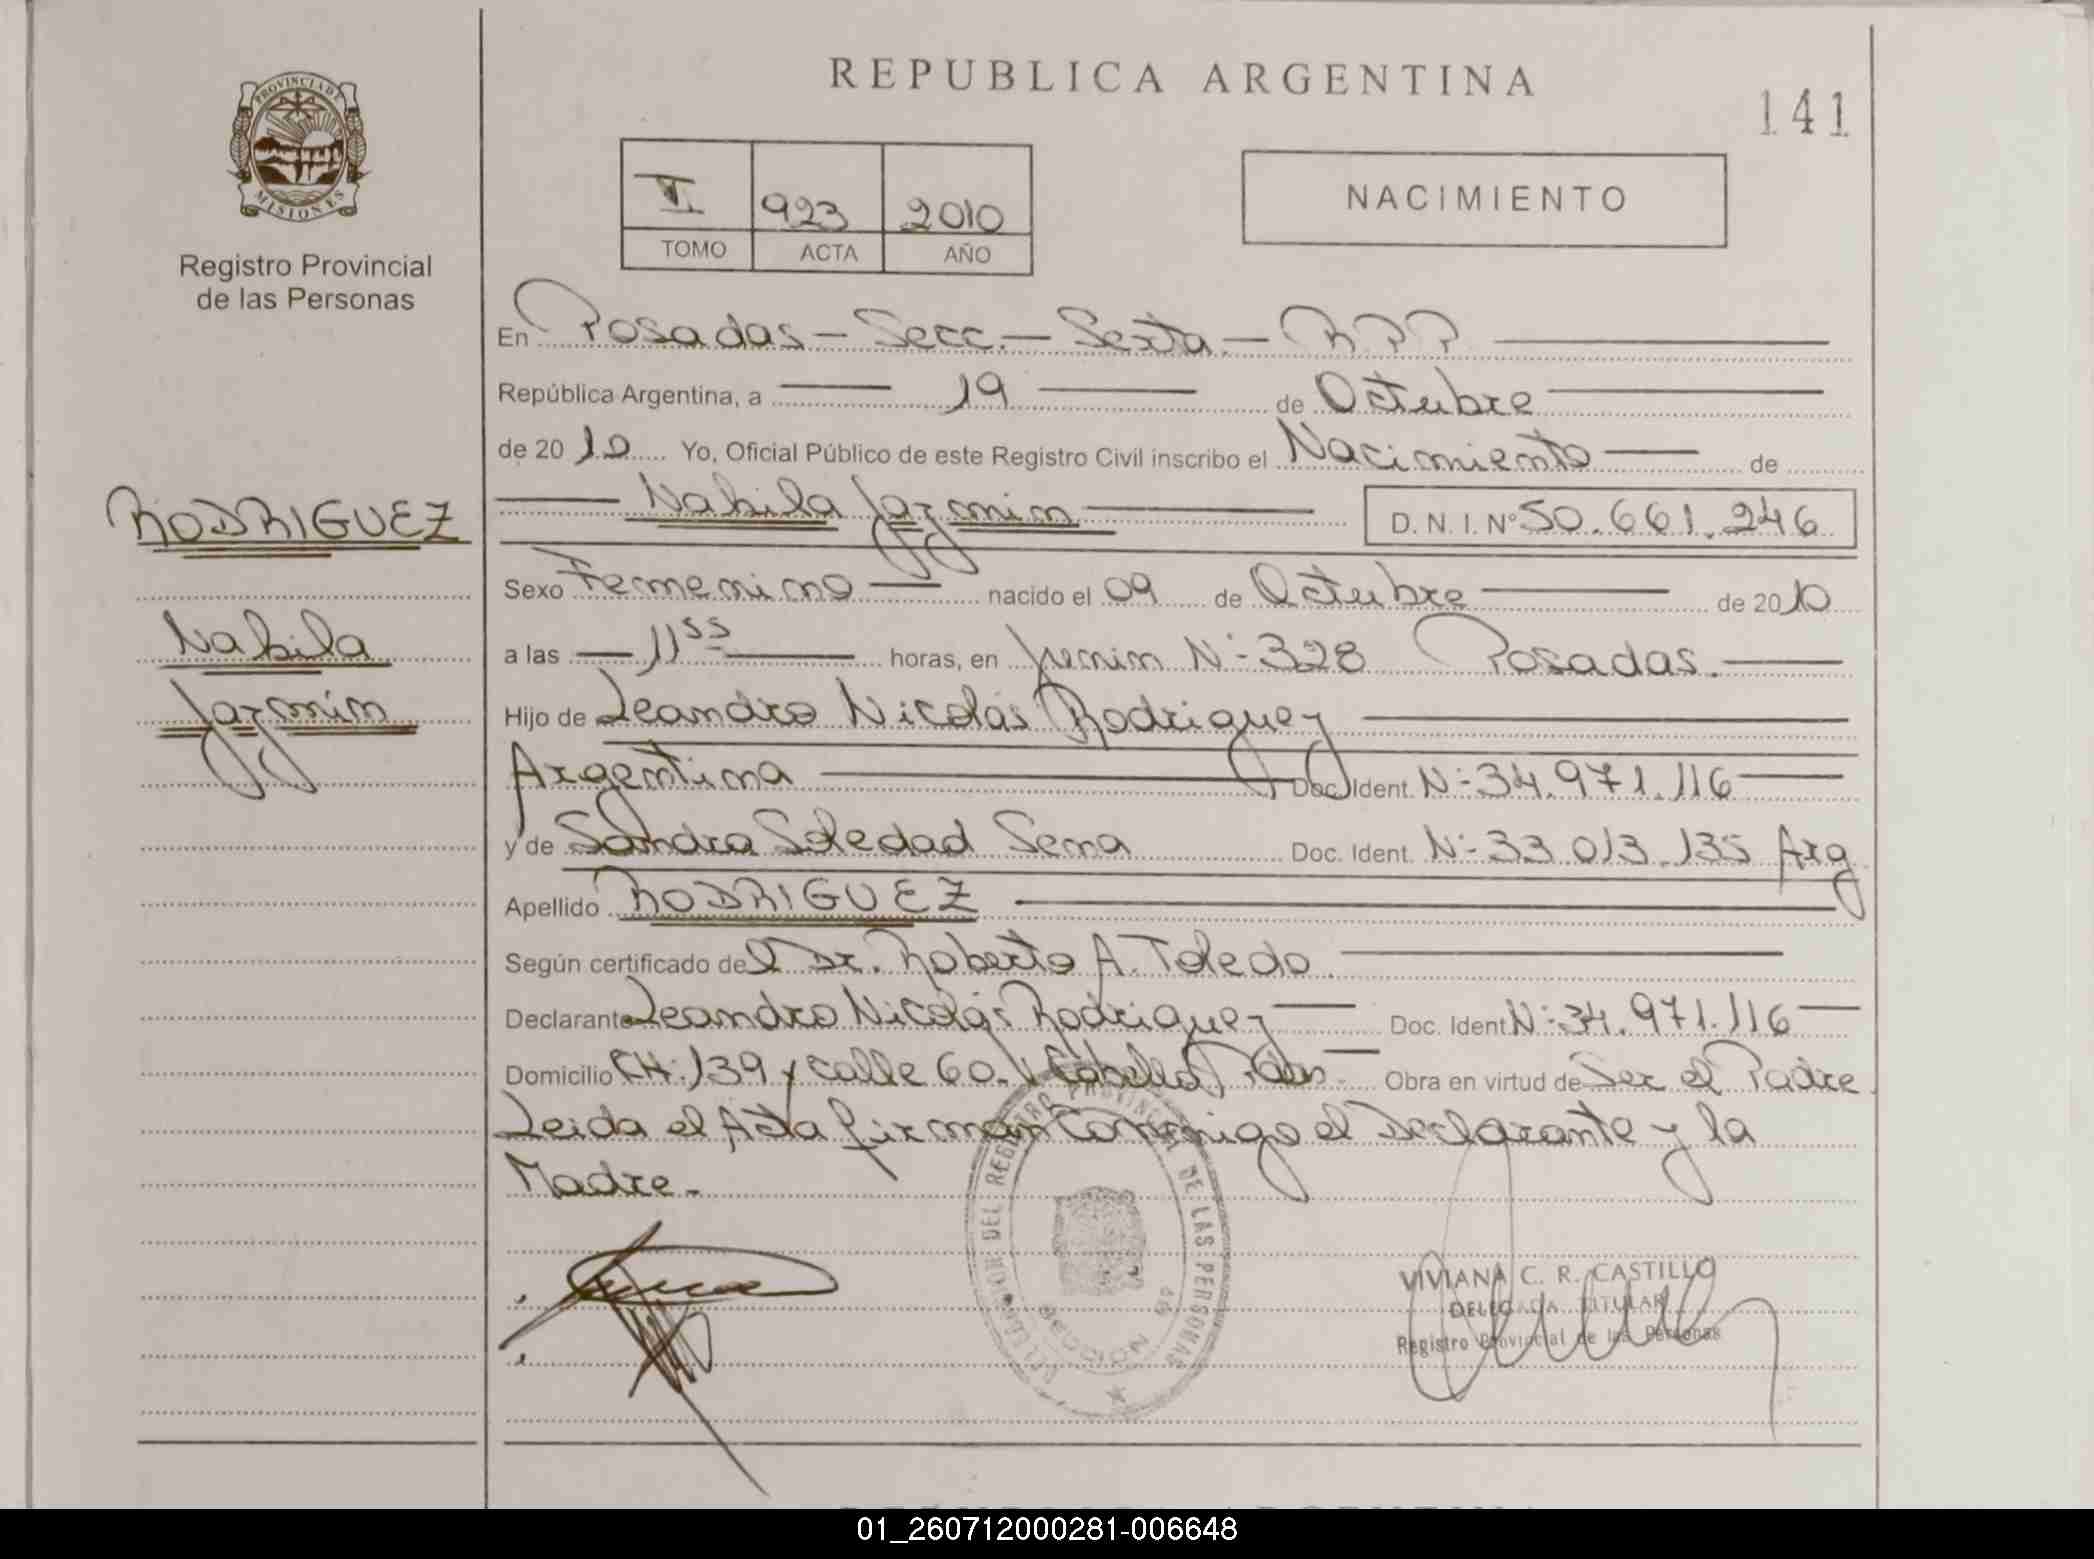 REPUBLICA ARGENTINA
141
PROVINCIA DE
MISIONES
Registro Provincial
de las Personas
VI 923 2010
TOMO ACTA AÑO
NACIMIENTO
En Posadas - Secc. - Sexta - R P P
República Argentina, a 19 de Octubre
de 2010 Yo, Oficial Público de este Registro Civil inscribo el Nacimiento de
Nahila Jazmin D. N. I. Nº 50.661.246
RODRIGUEZ
Nahila
Jazmin
Sexo Femenino nacido el 09 de Octubre de 2010
a las 11 55 horas, en Junin Nº 328 Posadas.
Hijo de Leandro Nicolás Rodriguez
Argentina Doc. Ident. Nº 34.971.116
y de Sandra Soledad Sena Doc. Ident. Nº 33.013.135 Arg
Apellido RODRIGUEZ
Según certificado del Dr. Roberto A. Toledo.
Declarante Leandro Nicolás Rodriguez Doc. Ident. Nº 34.971.116
Domicilio CH: 139 y calle 60. Obra en virtud de Ser el Padre
Leida el Acta firman Conmigo el Declarante y la
Madre.
DEL REGISTRO PROVINCIAL DE LAS PERSONAS
VIVIANA C. R. CASTILLO
DELEGADA TITULAR
Registro Provincial de las Personas
01_260712000281-006648